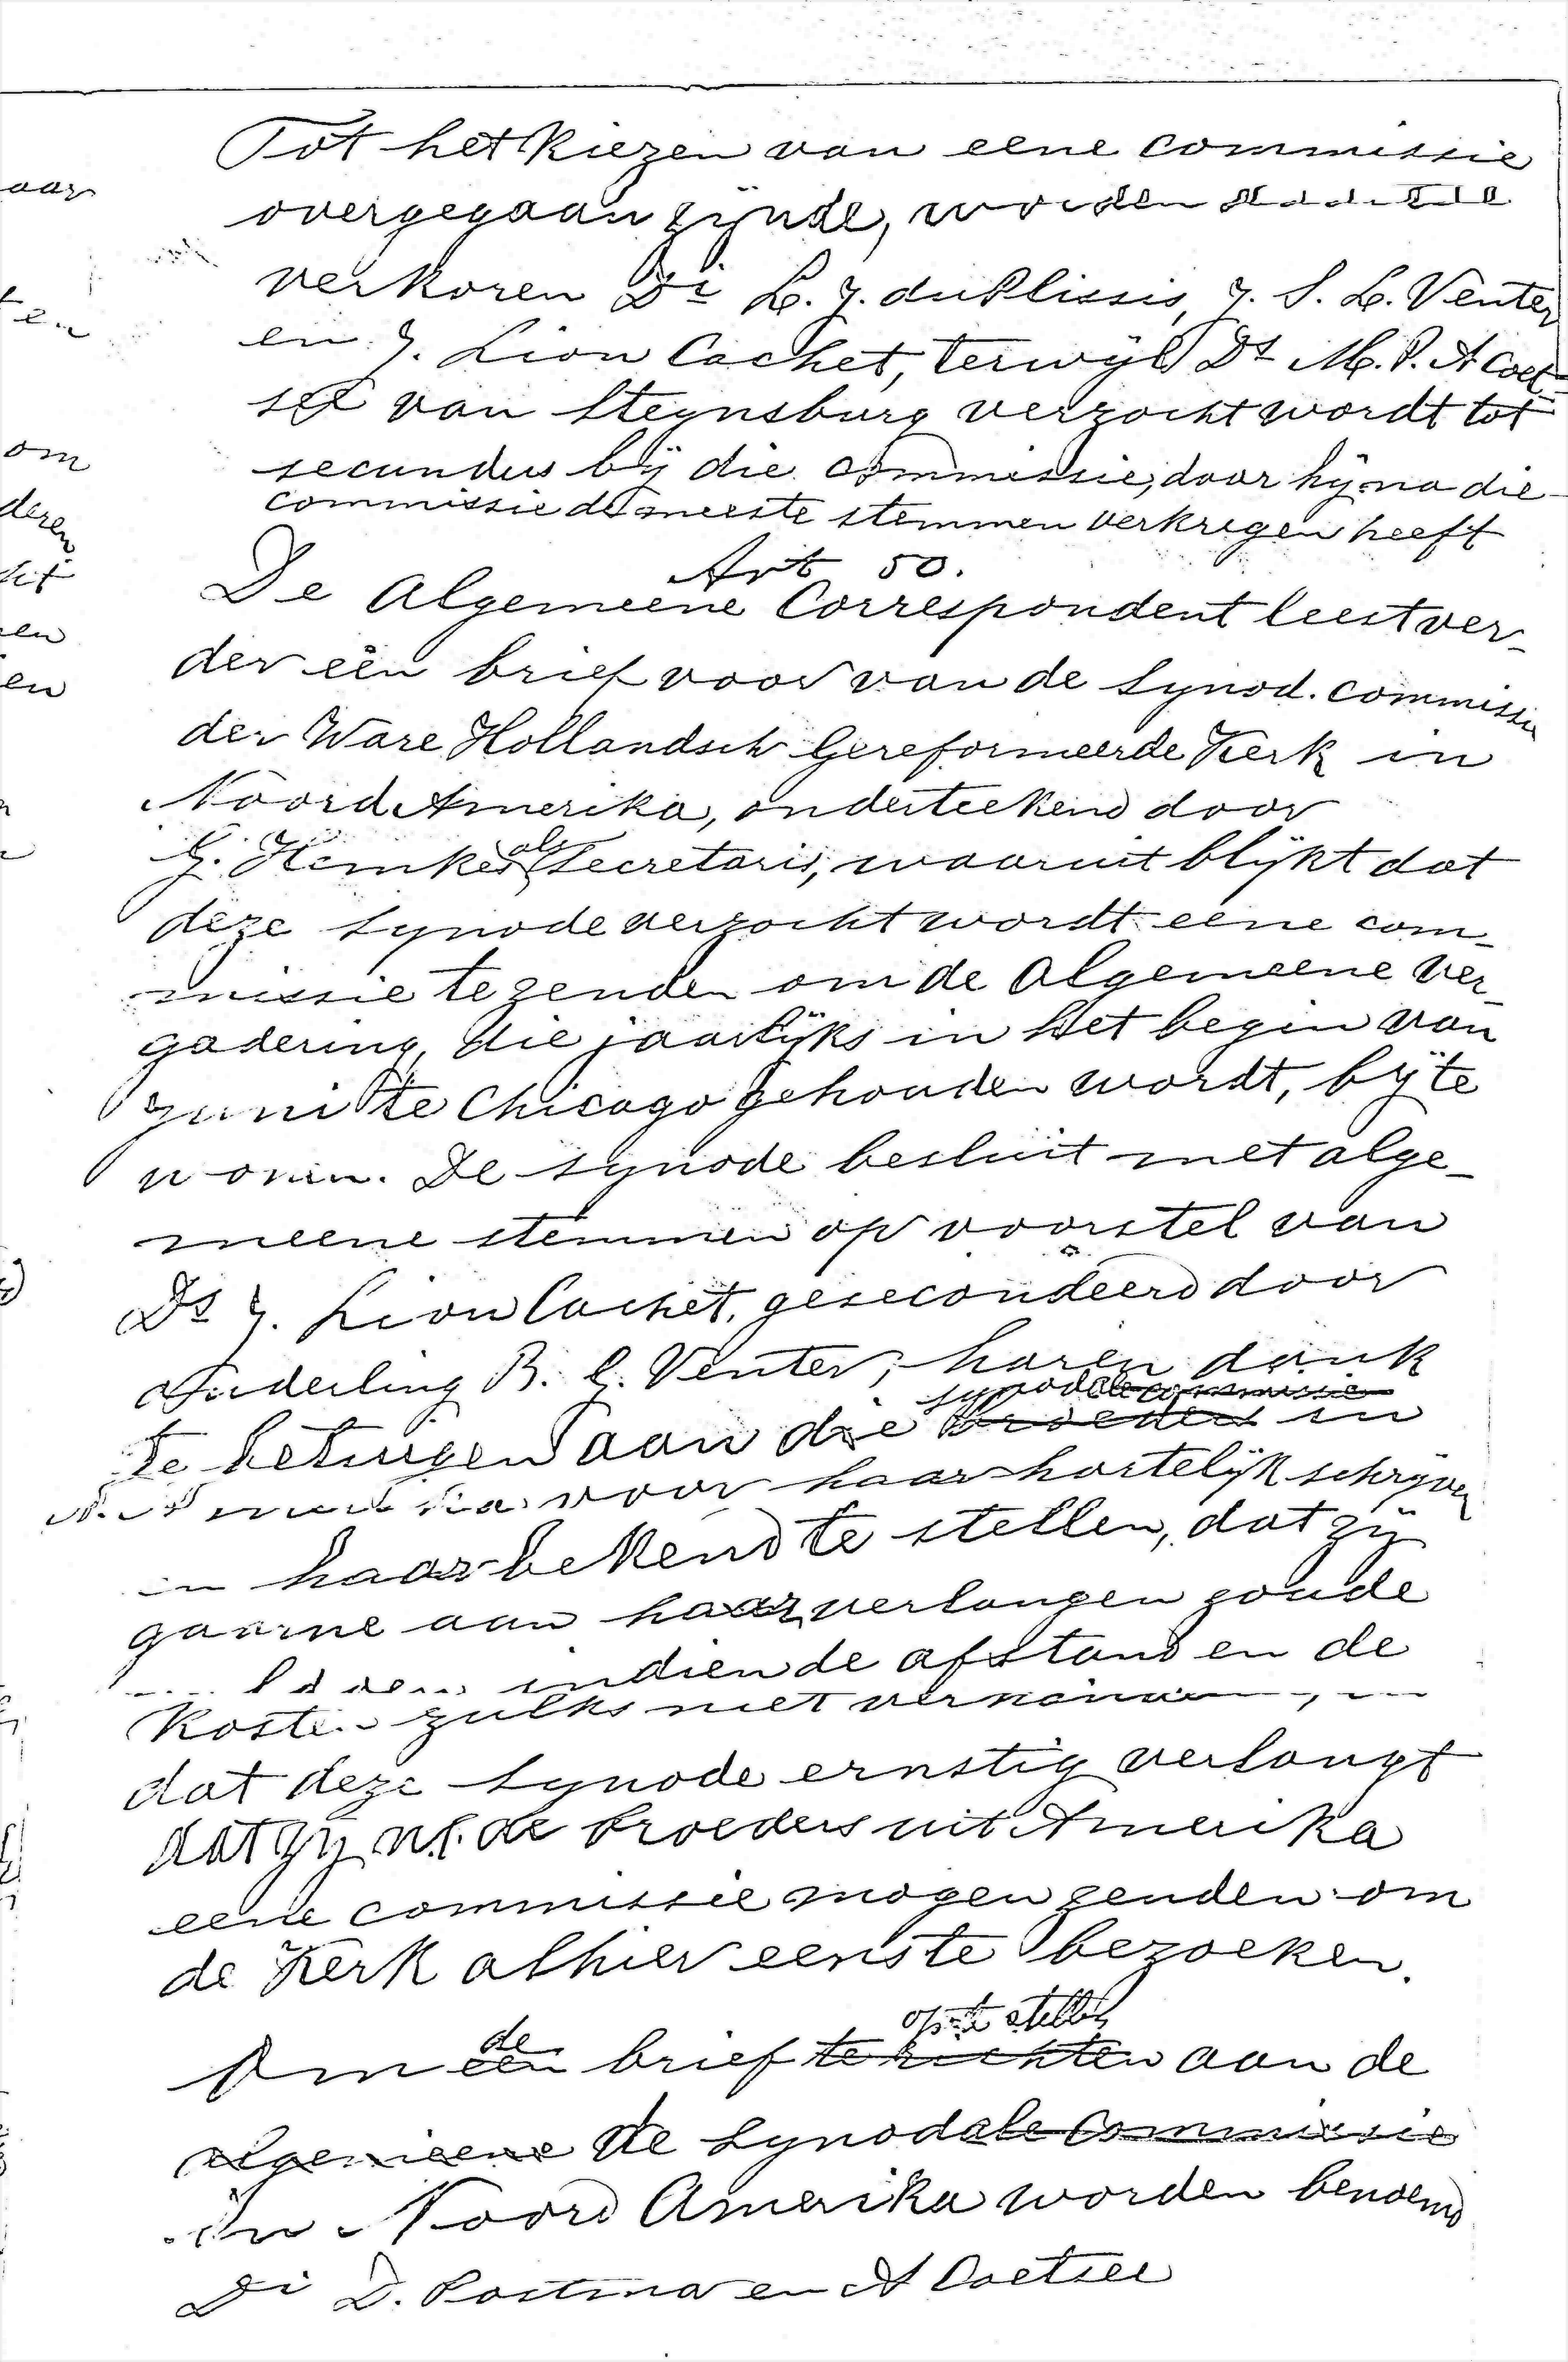 Tot het kiezen van eene commissie
overgegaan zijnde, worden
verkoren Di L. J. du Plissis, J. S. L. Venter
en J. Lion Cachet, terwijl Ds M. P. A Coet-
see van Steynsburg verzocht wordt tot
secundus bij die commissie, daar hij na die
commissie de meeste stemmen verkregen heeft
Art 50.
De Algemeene Correspondent leest ver-
der één brief voor van de Synod. commissie
der Ware Hollandsch Gereformeerde Kerk in
Noord Amerika, onderteekend door
G. Hemkes als Secretaris, waaruit blijkt dat
deze Synode verzocht wordt eene com-
missie te zenden om de Algemeene Ver-
gadering, die jaarlijks in het begin van
Juni te Chicago gehouden wordt, bij te
wonen. De Synode besluit met alge-
meene stemmen op voorstel van
Ds J. Lion Cachet, gesecondeerd door
Ouderling B. G. Venter, haren dank
synodale commissie
te betuigen aan die broeders in
N. Amerika voor haar hartelijk schrijven
en haar bekend te stellen, dat zij
gaarne aan haar verlangen zoude
indien de afstand en de
Kosten zulks niet
dat deze Synode ernstig verlangt
dat zij nl. de broeders uit Amerika
eene commissie mogen zenden om
de Kerk alhier eens te bezoeken.
de op te stellen
Om een brief te richten aan de
algemeene de Synodale Commissie
in Noord Amerika worden benoemd
Di D. Postma en A Coetsee
aar
ten
om
deren
en
en